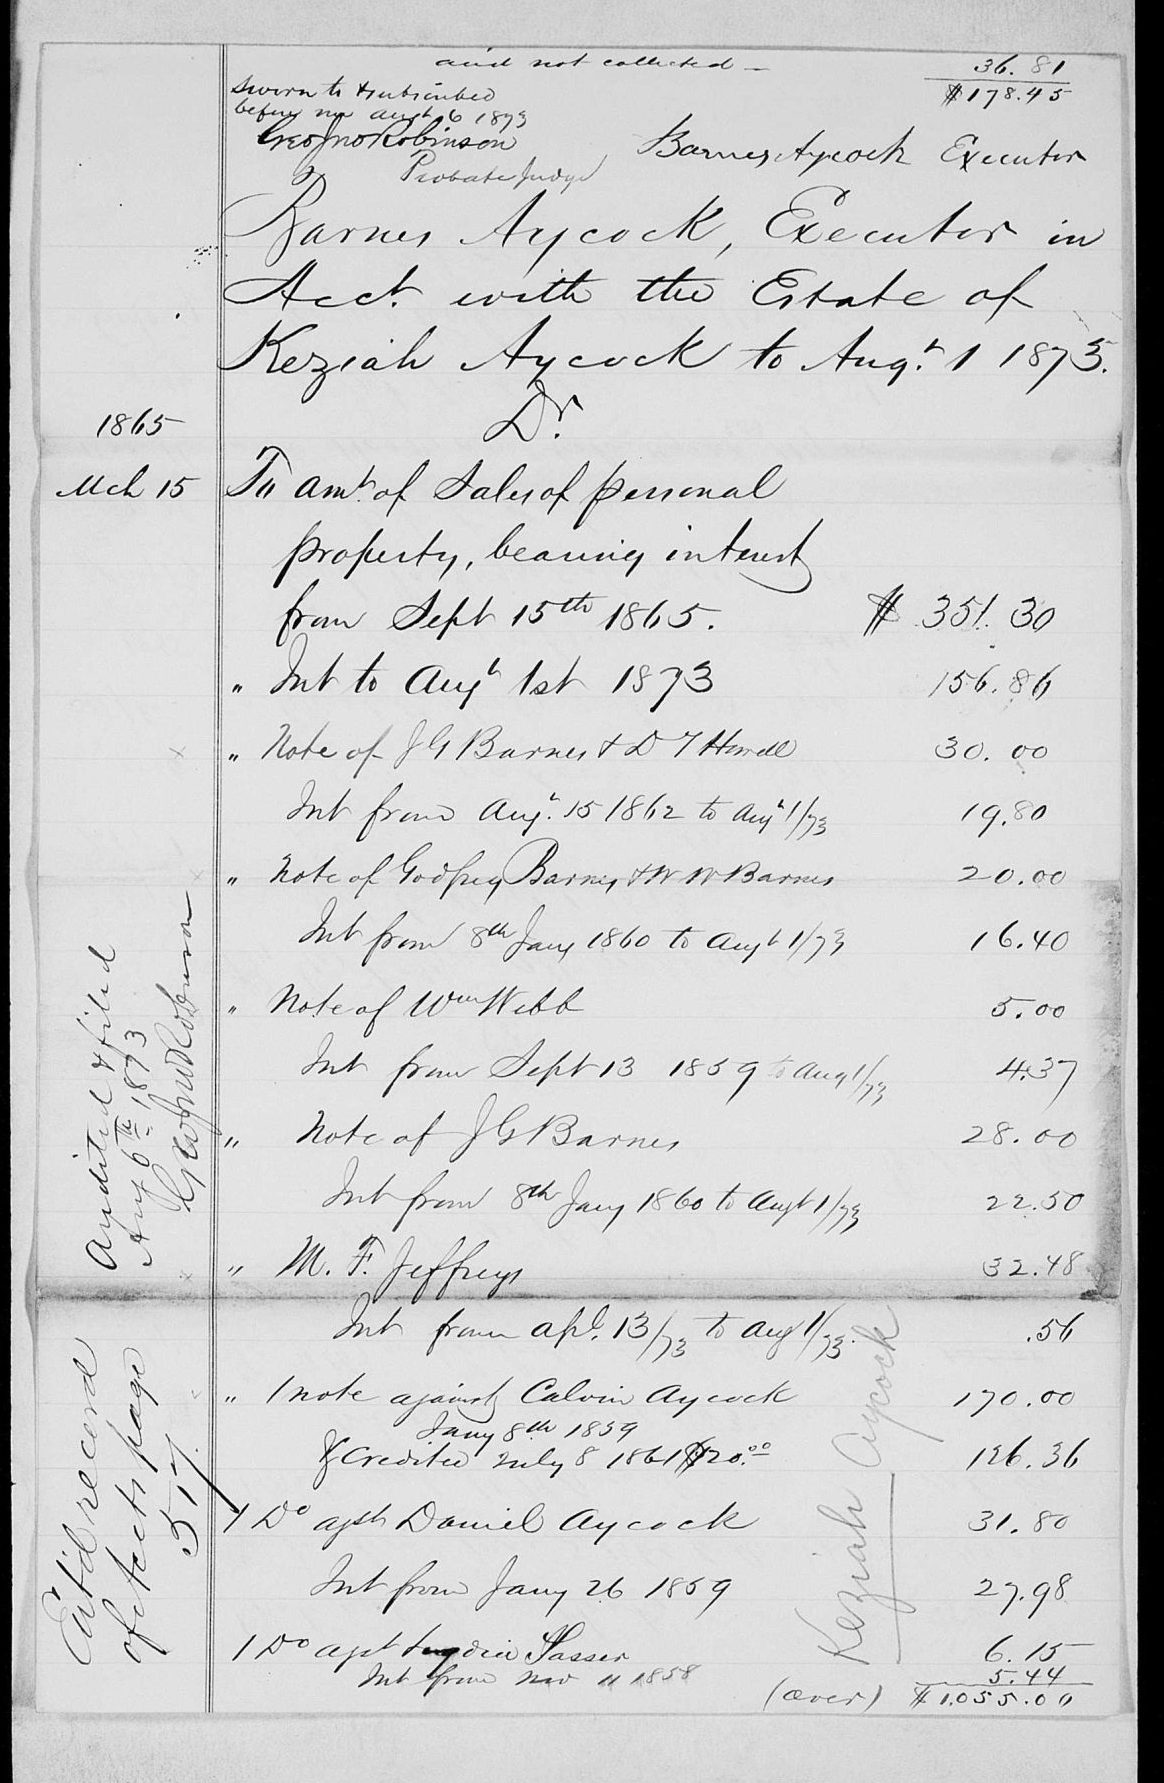 and not collected — 36.81
$178.45
Sworn to & subscribed
before me Augt 6 1873
Geo Jno Robinson
Probate Judge
Barnes Aycock Executor
Barnes Aycock, Executor in
Acct. with the Estate of
Keziah Aycock to Augt. 1 1873.
Dr.
1865
Mch 15 To amt. of Sales of personal
property, bearing interest
from Sept 15th 1865. $351.30
" Int to Augt 1st 1873 156.86
" Note of J G Barnes & D T Howell 30.00
Int from Augt. 15 1862 to Augt 1/73 19.80
" Note of Godfrey Barnes & W W Barnes 20.00
Int from 8th Jany 1860 to Augt 1/73 16.40
" Note of Wm Webb 5.00
Int from Sept 13 1859 to Aug 1/73 4.37
" Note of J G Barnes 28.00
Int from 8th Jany 1860 to Augt 1/73 22.50
" M. F. Jeffreys 32.48
Int from Apl. 13/73 to Aug 1/73. .56
" 1 note against Calvin Aycock 170.00
Jany 8th 1859
& Credited July 8 1861 $120.00 126.36
1 Do agst Daniel Aycock 31.80
Int from Jany 26 1859 27.98
1 Do agst Lydia Sasser 6.15
Int from Nov 11 1858 5.44
(over) $1,055.00
Audited & filed
Aug 6th 1873
Geo Jno Robinson
Ent'd record
of Accts page
517.
Keziah Aycock